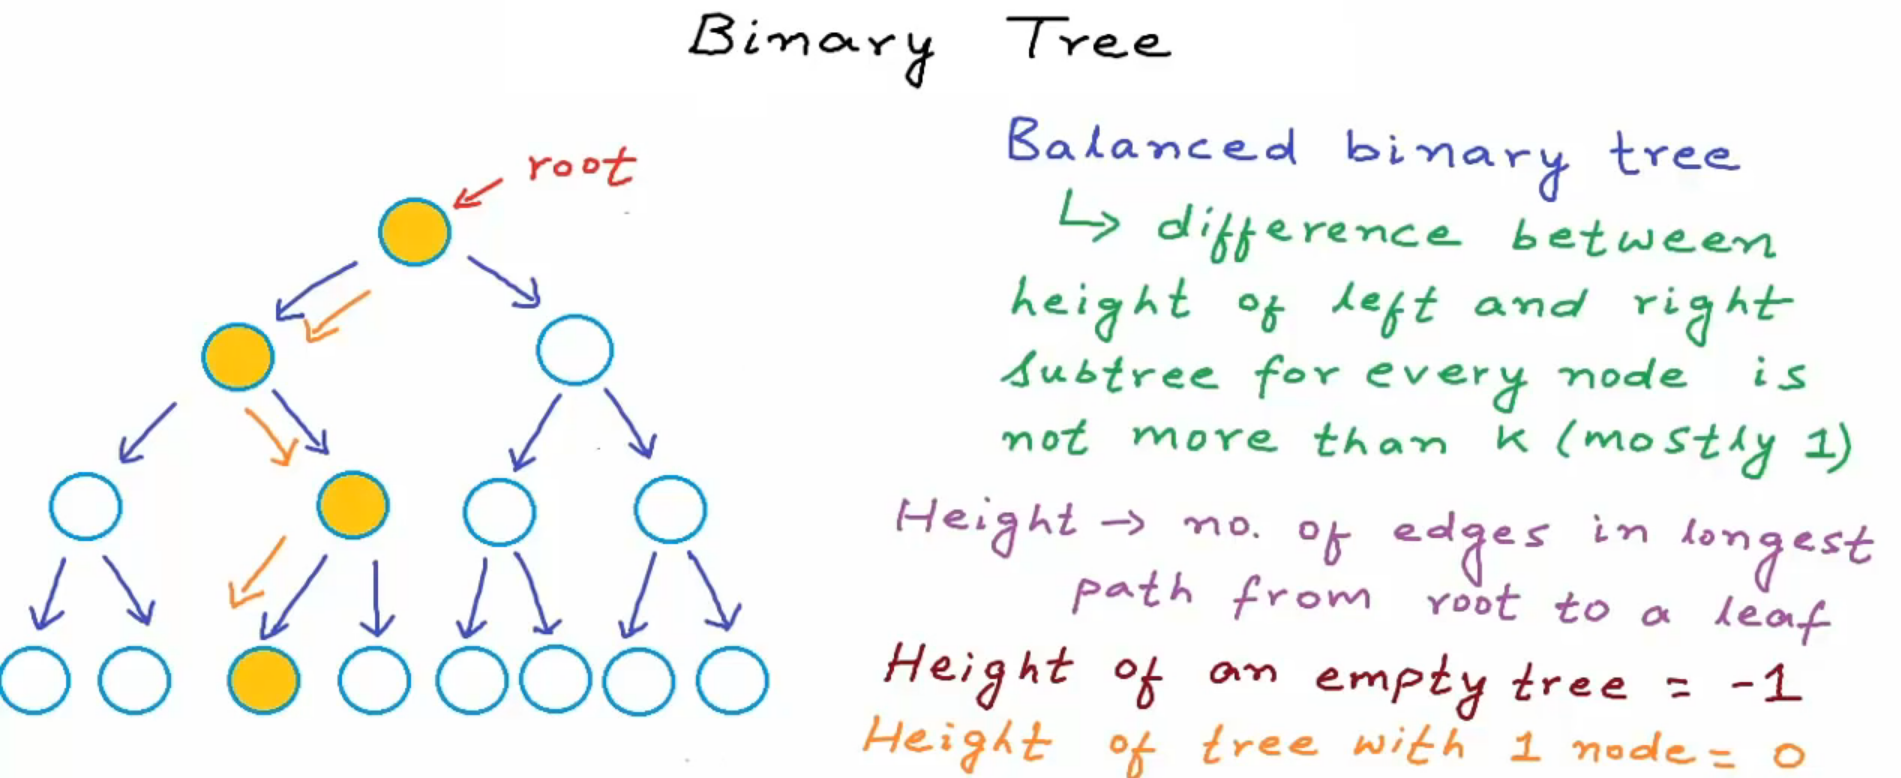 Binary Tree
root
Balanced binary tree
↳ difference between
height of left and right
subtree for every node is
not more than k (mostly 1)
Height → no. of edges in longest
path from root to a leaf
Height of an empty tree = -1
Height of tree with 1 node = 0